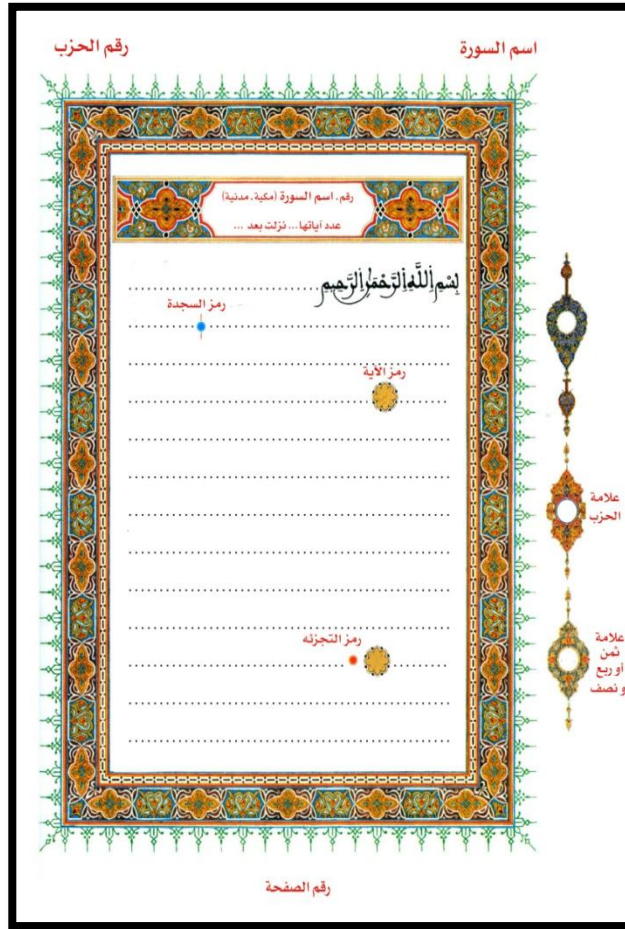 اسم السورة
رقم الحزب
رقم. اسم السورة (مكية. مدنية)
عدد آياتها... نزلت بعد ...
بِسْمِ اِللَّهِ اِلرَّحْمَٰنِ اِلرَّحِيمِ
رمز السجدة
رمز الآية
علامة
الحزب
رمز التجزئه
علامة
ثمن
أو ربع
و نصف
رقم الصفحة